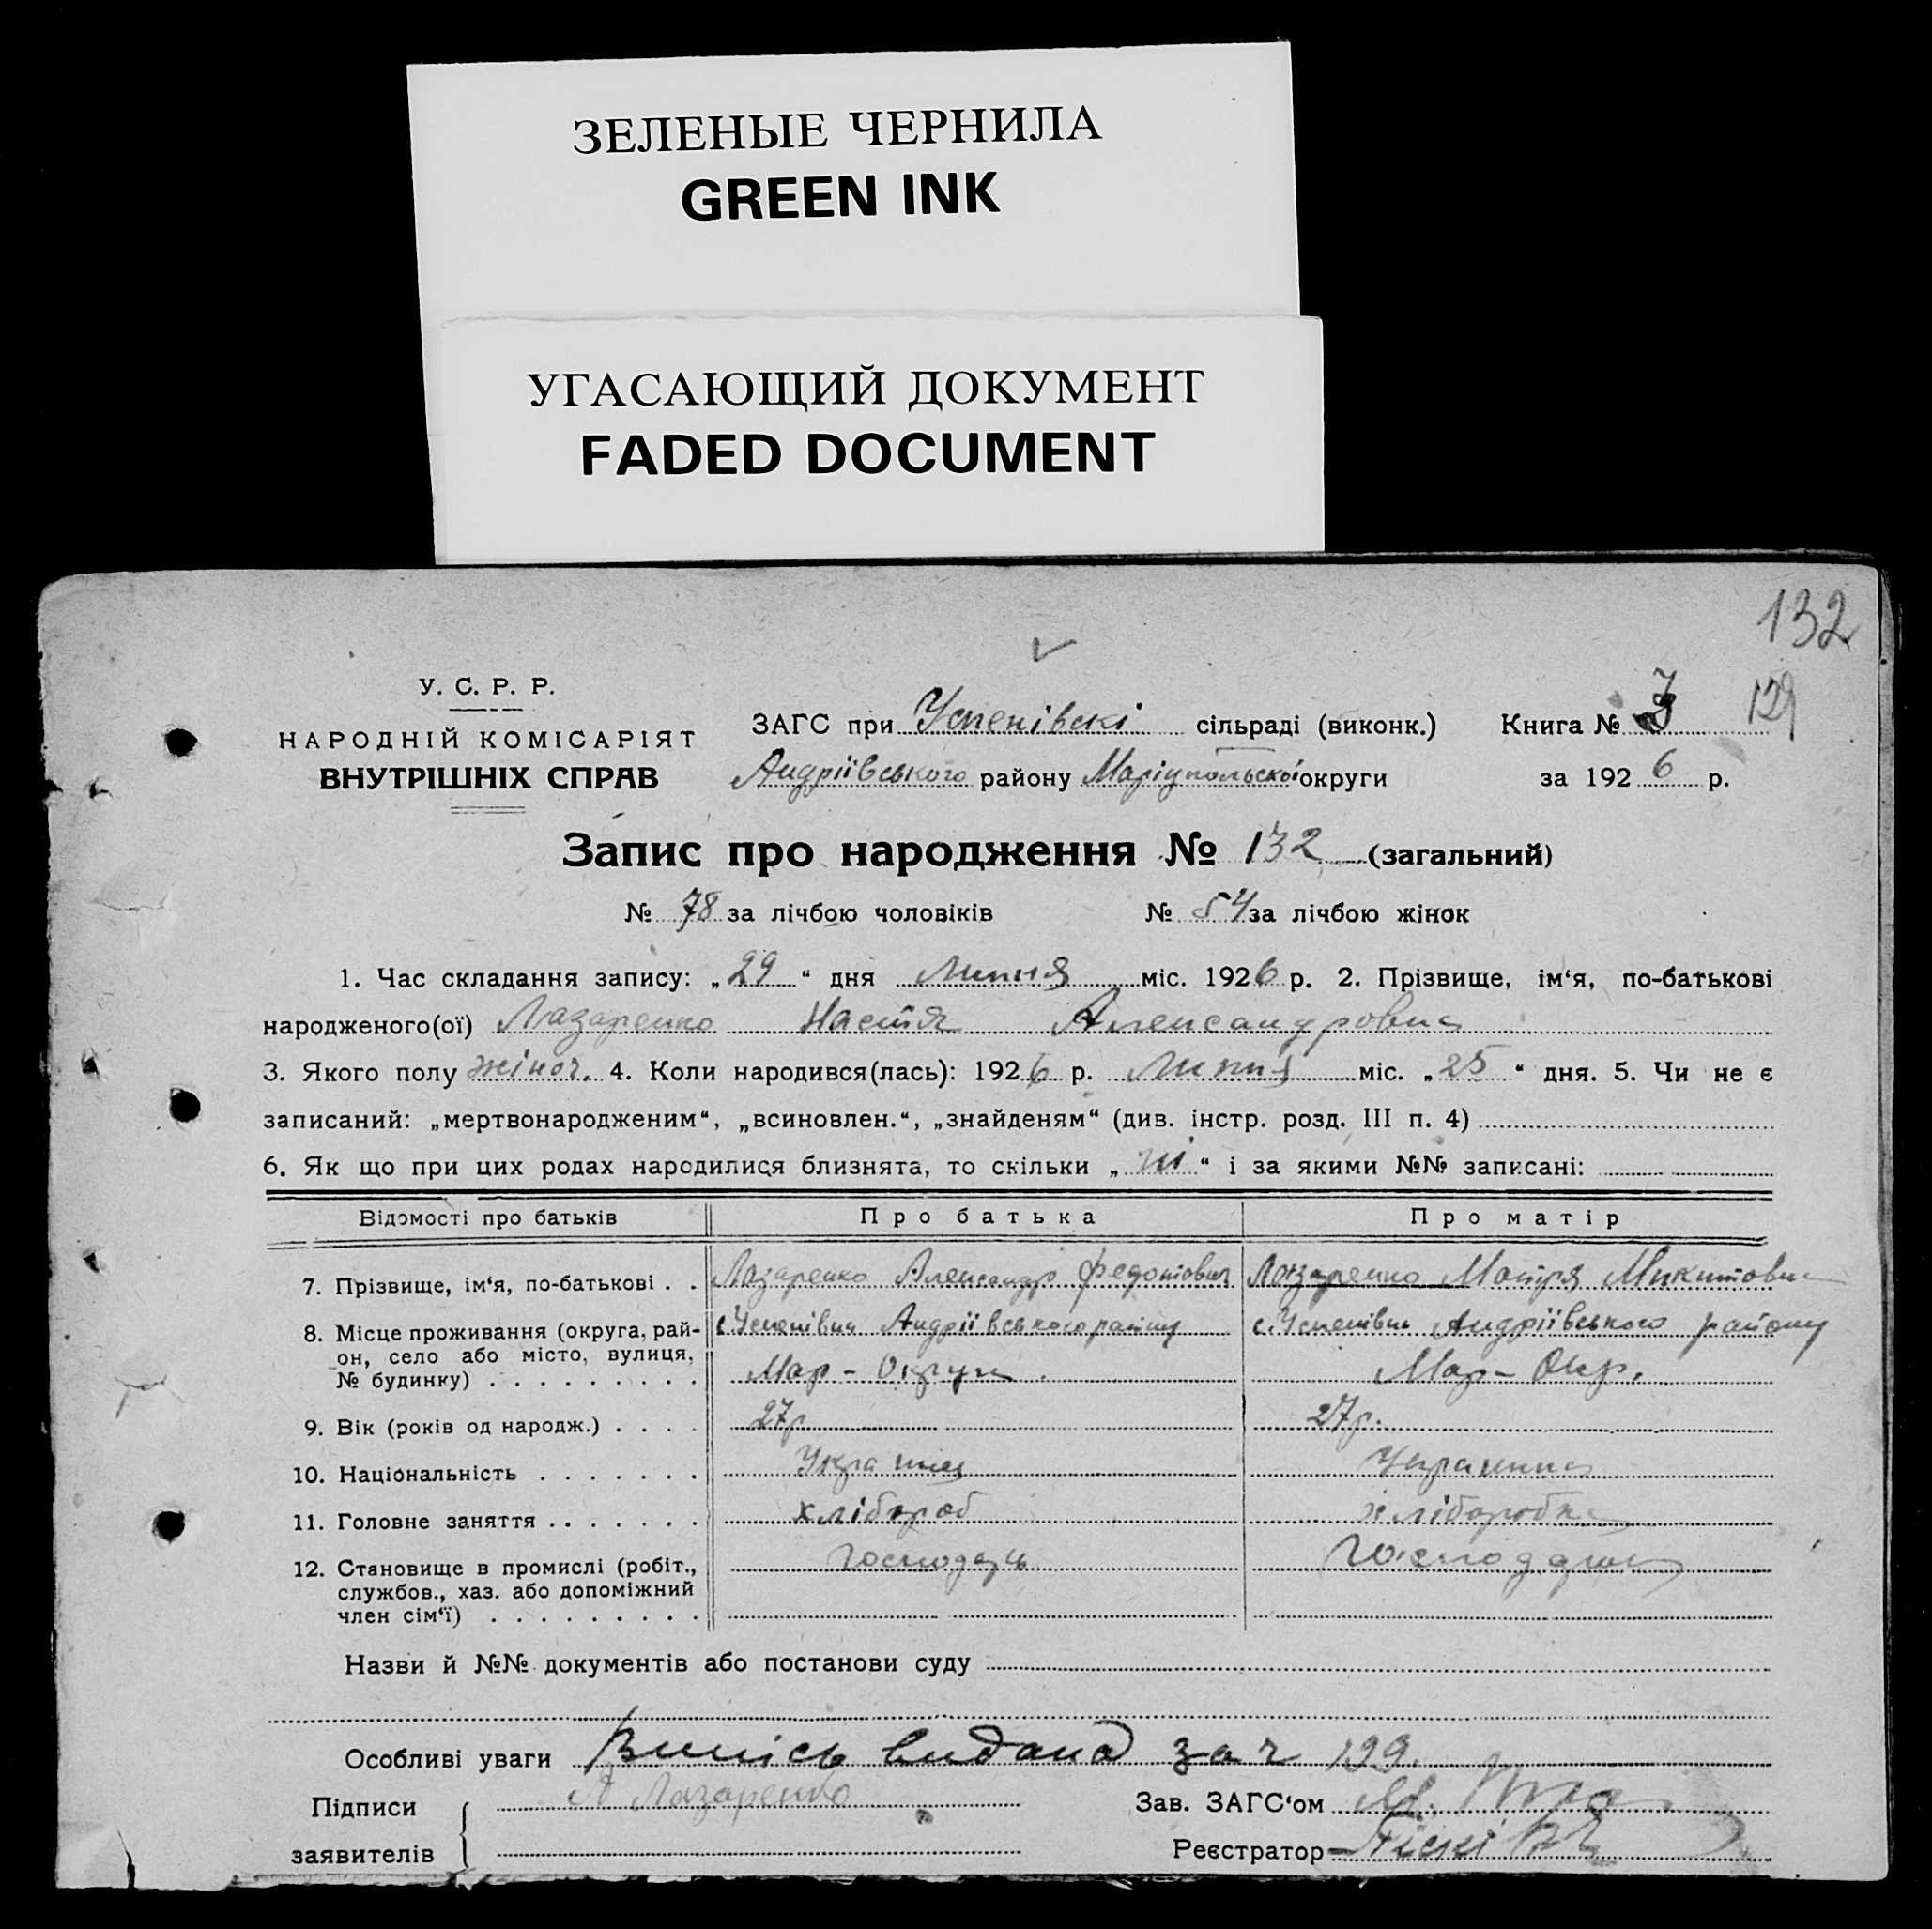 ЗЕЛЕНЫЕ ЧЕРНИЛА
GREEN INK
УГАСАЮЩИЙ ДОКУМЕНТ
FADED DOCUMENT
132
129
У. С. Р. Р.
НАРОДНІЙ КОМІСАРІЯТ
ВНУТРІШНІХ СПРАВ
ЗАГС при Успенівскі сільраді (виконк.) Книга №
Андріївського району Маріупольскої округи за 1926 р.
Запис про народження № 132 (загальний)
№ 78 за лічбою чоловіків № 54 за лічбою жінок
1. Час складання запису: „29“ дня Липня міс. 1926 р. 2. Прізвище, ім‘я, по-батькові
народженого(ої) Лазаренко Настя Александровна
3. Якого полу жіноч. 4. Коли народився(лась): 1926 р. Липня міс. „25“ дня. 5. Чи не є
записаний: „мертвонародженим“, „всиновлен.“, „знайденям“ (див. інстр. розд. III п. 4)
6. Як що при цих родах народилися близнята, то скільки „ні“ і за якими №№ записані:
Відомості про батьків Про батька Про матір
7. Прізвище, ім‘я, по-батькові . . Лазаренко Александр Федотович Лазаренко Мотря Микитовна
8. Місце проживання (округа, рай- с. Успенівка Андріївського району с. Успенівка Андріївського району
он, село або місто, вулиця,
№ будинку) . . . . . . . . . Мар - Округи . Мар - Окр.
9. Вік (років од народж.) . . . . 27р 27р.
10. Національність . . . . . . . Украинец Украинка
11. Головне заняття . . . . . . . хлібороб хліборобка
12. Становище в промислі (робіт., Господарь Господарка
службов., хаз. або допоміжний
член сім‘ї) . . . . . . . . .
Назви й №№ документів або постанови суду
Особливі уваги Випісь видана за ч 199.
Підписи А Лазаренко Зав. ЗАГС‘ом
заявителів Реєстратор